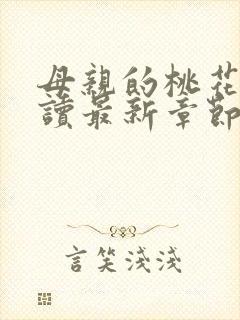 母親的桃花
讀最新章節
言笑淺淺